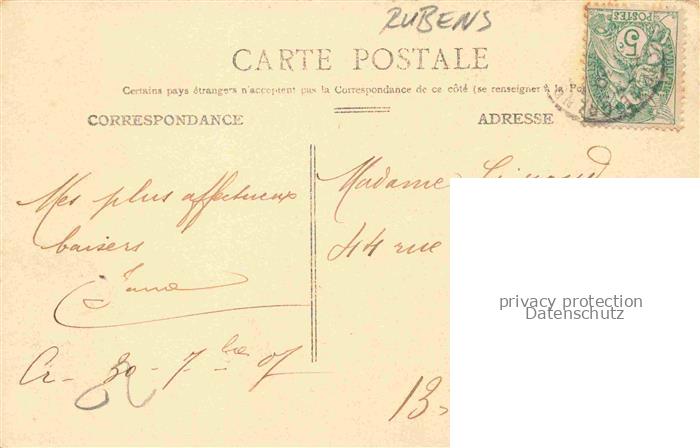 RUBENS
CARTE POSTALE
Certains pays étrangers n'acceptent pas la Correspondance de ce côté (se renseigner à la Pos
CORRESPONDANCE
ADRESSE
5c
POSTES
Mes plus affectueux
baisers
30 - 7bre 07
Madame
44 rue
13
privacy protection
Datenschutz